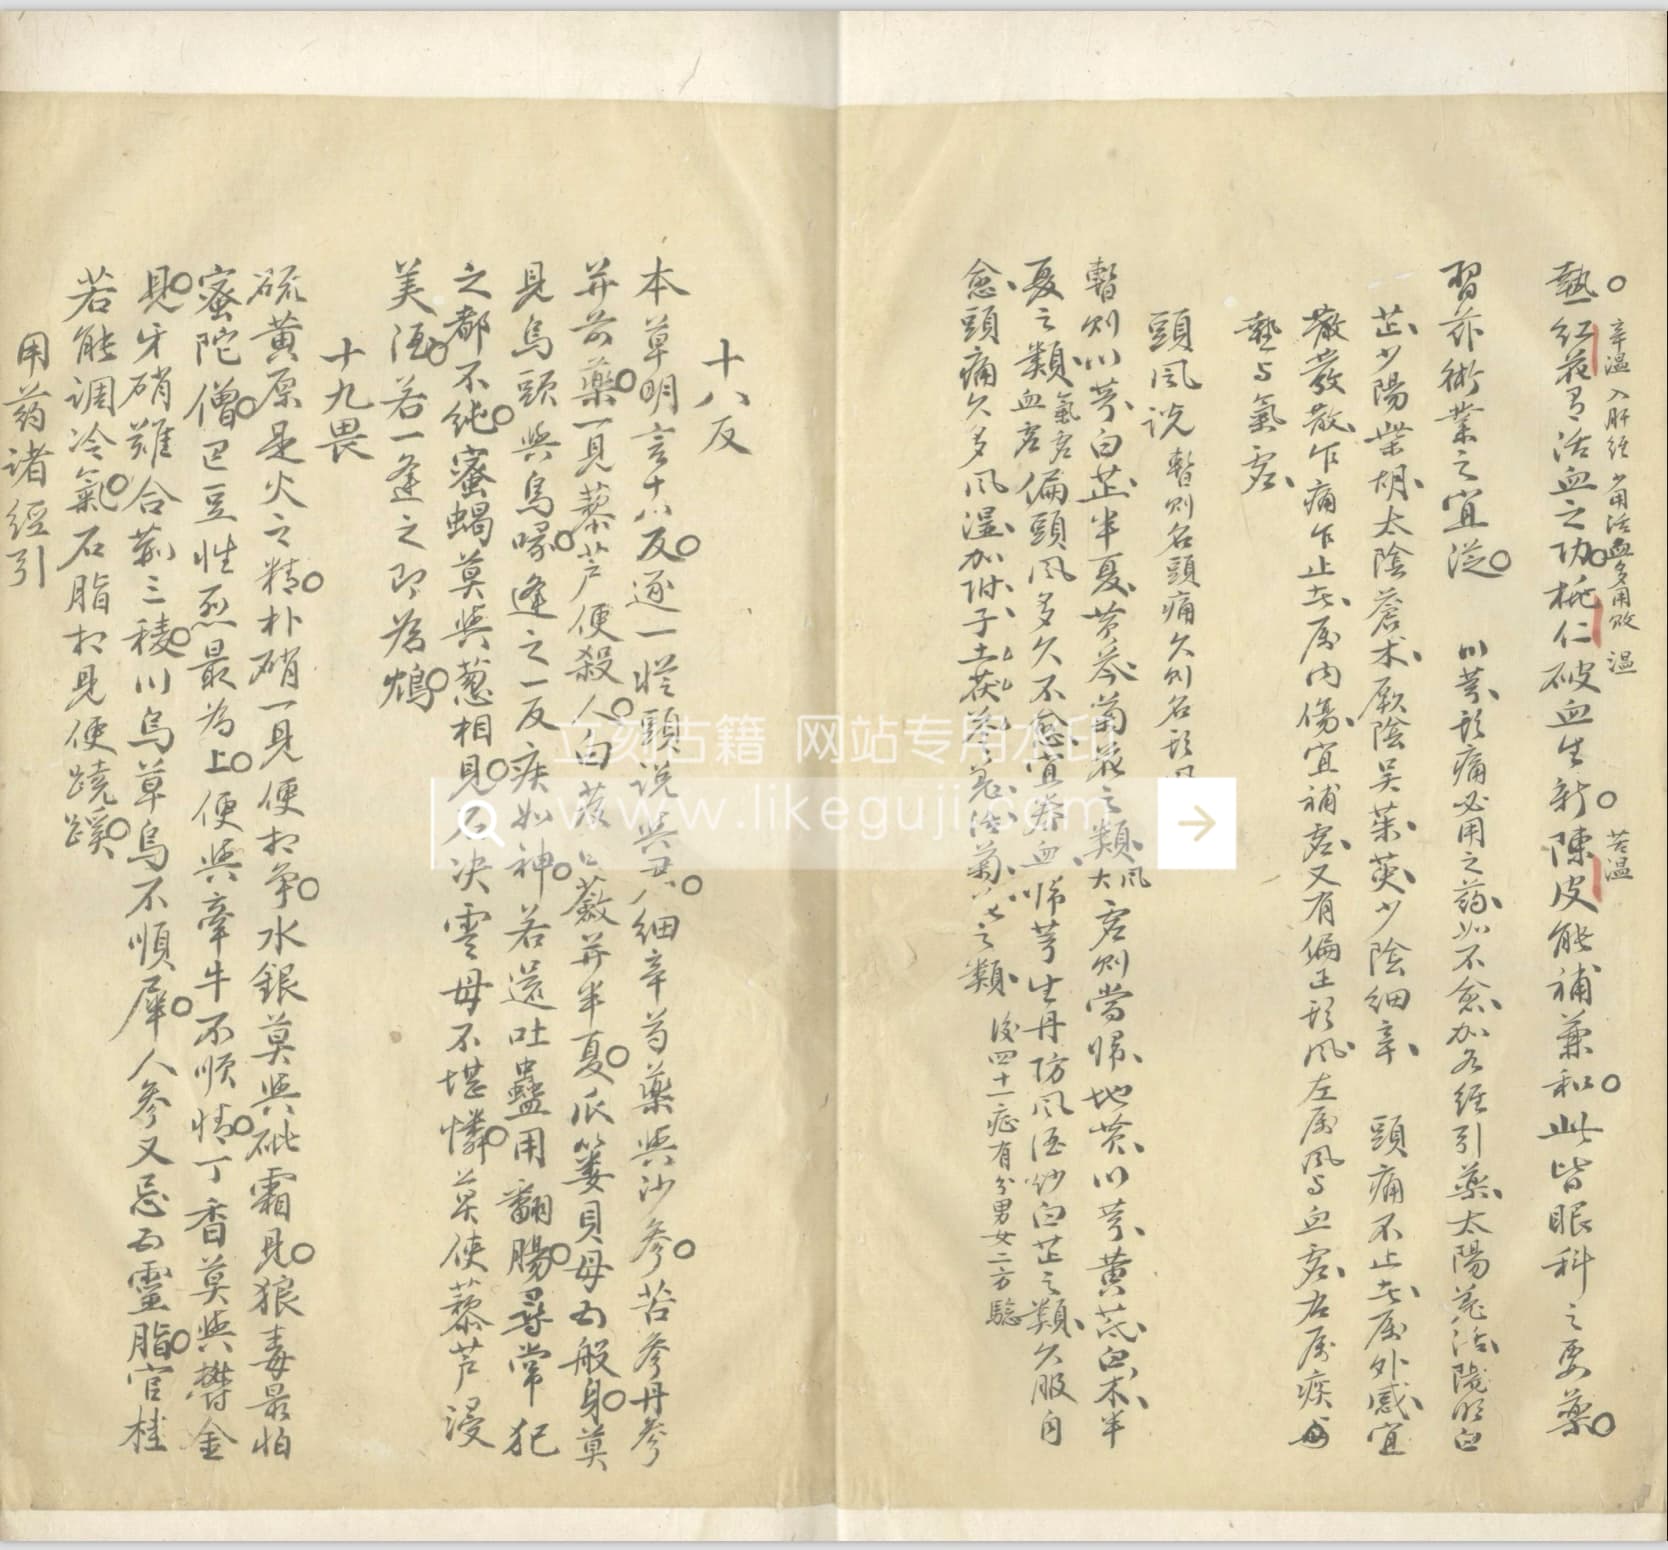 辛温 入肝经 少用活血多用败 温 苦温
熱 红花有活血之功桃仁破血生新陳皮能補兼和此皆眼科之要藥
習茲術業之宜從 川芎頭痛必用之药如不愈加各經引藥太陽羌活陽明白
芷少陽柴胡太陰蒼术厥陰吴茱萸少陰細辛 頭痛不止者屬外感宜
發散乍痛乍止者屬内傷宜補虚又有偏正頭风左屬风与血虚右屬痰与
熱与氣虚
頭风说 暫则名頭痛久则名頭
暫则川芎白芷半夏黄芩菊花之類大虚则當歸地黄川芎黄芪白术半
风
夏之類 偏頭风多久不愈宜养血归芎生丹防风酒炒白芷之類久服自
氣虚
血虚
愈頭痛久多风濕加附子土茯苓羌活菊之類
後四十一症有分男女二方驗
十八反
本草明言十八反逐一從頭说 與 細辛芍藥與沙參苦參丹參
并前藥一見藜芦便殺人白 蘞并半夏瓜蒌貝母五般身莫
見烏頭與烏喙逢之一反疾如神若還吐蠱用翻腸尋常犯
之都不純蜜蝎莫與葱相見石决雲母不堪憐莫使藜芦浸
美酒若一逢之即為鴆
十九畏
硫黄原是火之精朴硝一見便相争水銀莫與砒霜見狼毒最怕
蜜陀僧巴豆性烈最為上便與牽牛不順情丁香莫與欝金
見牙硝難合荆三稜川烏草烏不順犀人參又忌五靈脂官桂
若能調冷氣石脂相見便蹺蹊
用药诸經引
立刻古籍 网站专用水印
www.likeguji.com